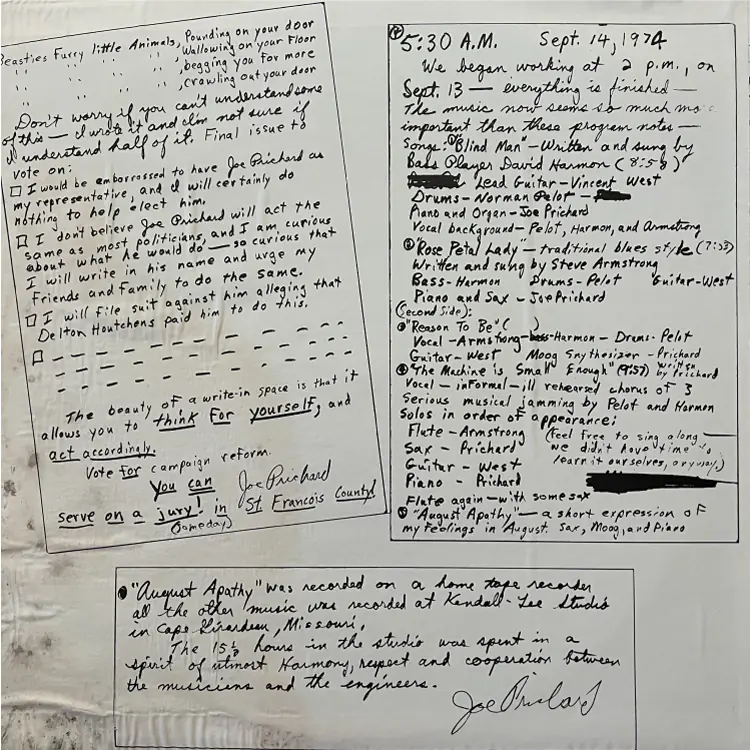 Beasties Furry little Animals, Pounding on your door
" " " " , Wallowing on your Floor
" " " " , begging you for more
" " " " , crawling out your door
Don't worry if you can't understand some
of this — I wrote it and I'm not sure if
I understand half of it. Final issue to
vote on:
□ I would be embarrossed to have Joe Prichard as
my representative, and I will certainly do
nothing to help elect him.
□ I don't believe Joe Prichard will act the
same as most politicians, and I am curious
about what he would do — so curious that
I will write in his name and urge my
Friends and Family to do the same.
□ I will file suit against him alleging that
Delton Houtchens paid him to do this.
□
The beauty of a write-in space is that it
allows you to think for yourself, and
act accordingly.
Vote for campaign reform.
You can
serve on a jury! in
(someday)
Joe Prichard
St Francois County!
5:30 A.M. Sept. 14, 1974
We began working at 2 p.m., on
Sept. 13 — everything is finished —
The music now seems so much mo
important than these program notes —
Songs: ① "Blind Man" — Written and sung by
Bass Player David Harmon (8:58)
Lead Guitar — Vincent West
Drums — Norman Pelot —
Piano and Organ — Joe Prichard
Vocal background — Pelot, Harmon, and Armstrong
② "Rose Petal Lady" — traditional blues style (7:53)
Written and sung by Steve Armstrong
Bass - Harmon Drums - Pelot Guitar - West
Piano and Sax — Joe Prichard
(Second Side):
"Reason To Be" ( )
Vocal - Armstrong - bass - Harmon - Drums - Pelot
Guitar - West Moog Snythesizer - Prichard
"The Machine is Small Enough" (9:57) written by Prichard
Vocal — inFormal — ill rehearsed chorus of 3
Serious musical jamming by Pelot and Harmon
Solos in order of appearance:
Flute — Armstrong
Sax — Prichard
Guitar — West
Piano — Prichard
(feel free to sing along —
we didn't have time to
learn it ourselves, anyway.)
Flute again — with some sax
"August Apathy" — a short expression of
my Feelings in August. Sax, Moog, and Piano
"August Apathy" was recorded on a home tape recorder
all the other music was recorded at Kendall-Lee Studio
in Cape Girardeau, Missouri.
The 15½ hours in the studio was spent in a
spirit of utmost Harmony, respect and cooperation between
the musicians and the engineers.
Joe Prichard